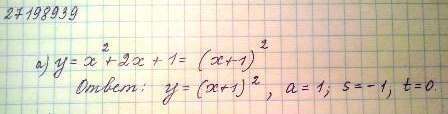 27198939
а) y = x² + 2x + 1 = (x+1)²
Ответ: y = (x+1)², a = 1; s = -1, t = 0.